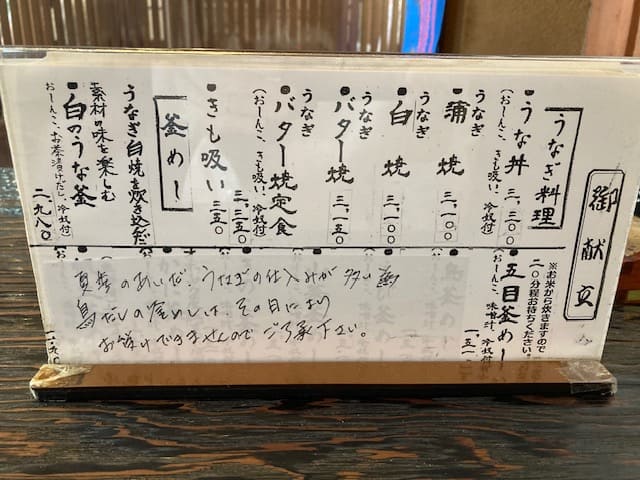 御献立
うなぎ料理
●うな丼 三、三〇〇
(おしんこ、きも吸い、冷奴付)
●うなぎ
蒲焼 三、一〇〇
●うなぎ
白焼 三、一〇〇
●うなぎ
バター焼 三、一五〇
●うなぎ
バター焼定食 三、三五〇
(おしんこ、きも吸い、冷奴付)
●きも吸い 三五〇
釜めし
うなぎ白焼を炊き込んだ
素材の味を楽しむ
●白のうな釜 二、九八〇
おしんこ、お茶漬けだし、冷奴付
※お米から炊きますので
二〇分程お待ちください。
●五目釜めし
(おしんこ、味噌汁、冷奴付)
夏季のあいだ、うなぎの仕込みが多い為
鳥だしの釜めしは、その日により
お受けできませんのでご了承下さい。